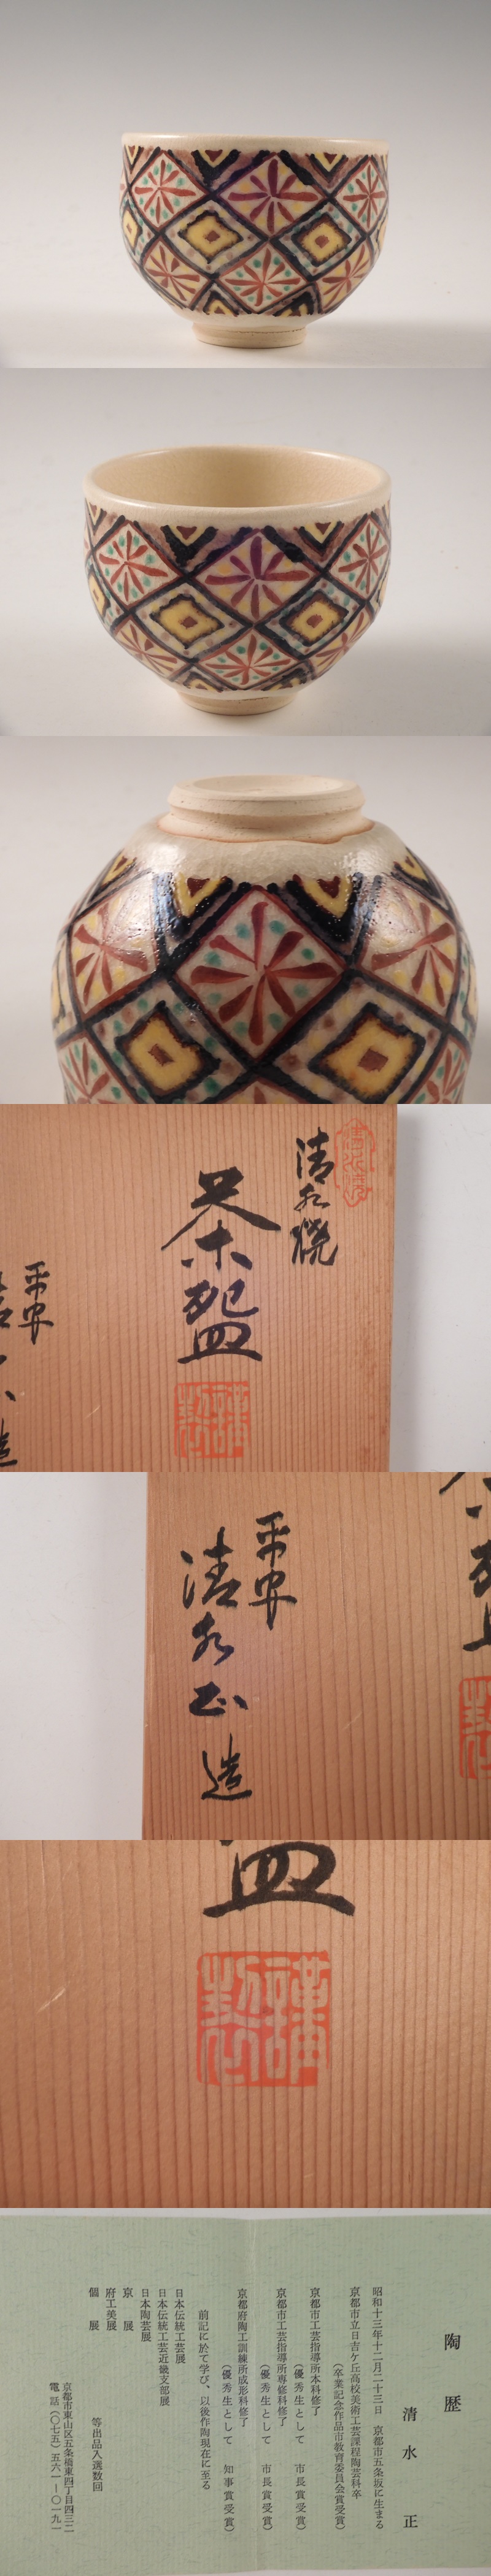 清水焼
茶盌
平安
平安
清水正造
陶歴
清水 正
昭和十三年十二月二十三日 京都市五条坂に生まる
京都市立日吉ケ丘高校美術工芸課程陶芸科卒
(卒業記念作品市教育委員会賞受賞)
京都市工芸指導所本科修了
(優秀生として 市長賞受賞)
京都市工芸指導所専修科修了
(優秀生として 市長賞受賞)
京都府陶工訓練所成形科修了
(優秀生として 知事賞受賞)
前記に於て学び、以後作陶現在に至る
日本伝統工芸展
日本伝統工芸近畿支部展
日本陶芸展
京展
府工美展
個展
等出品入選数回
京都市東山区五条橋東四丁目四三二
電話(〇七五)五六一ー〇一九一